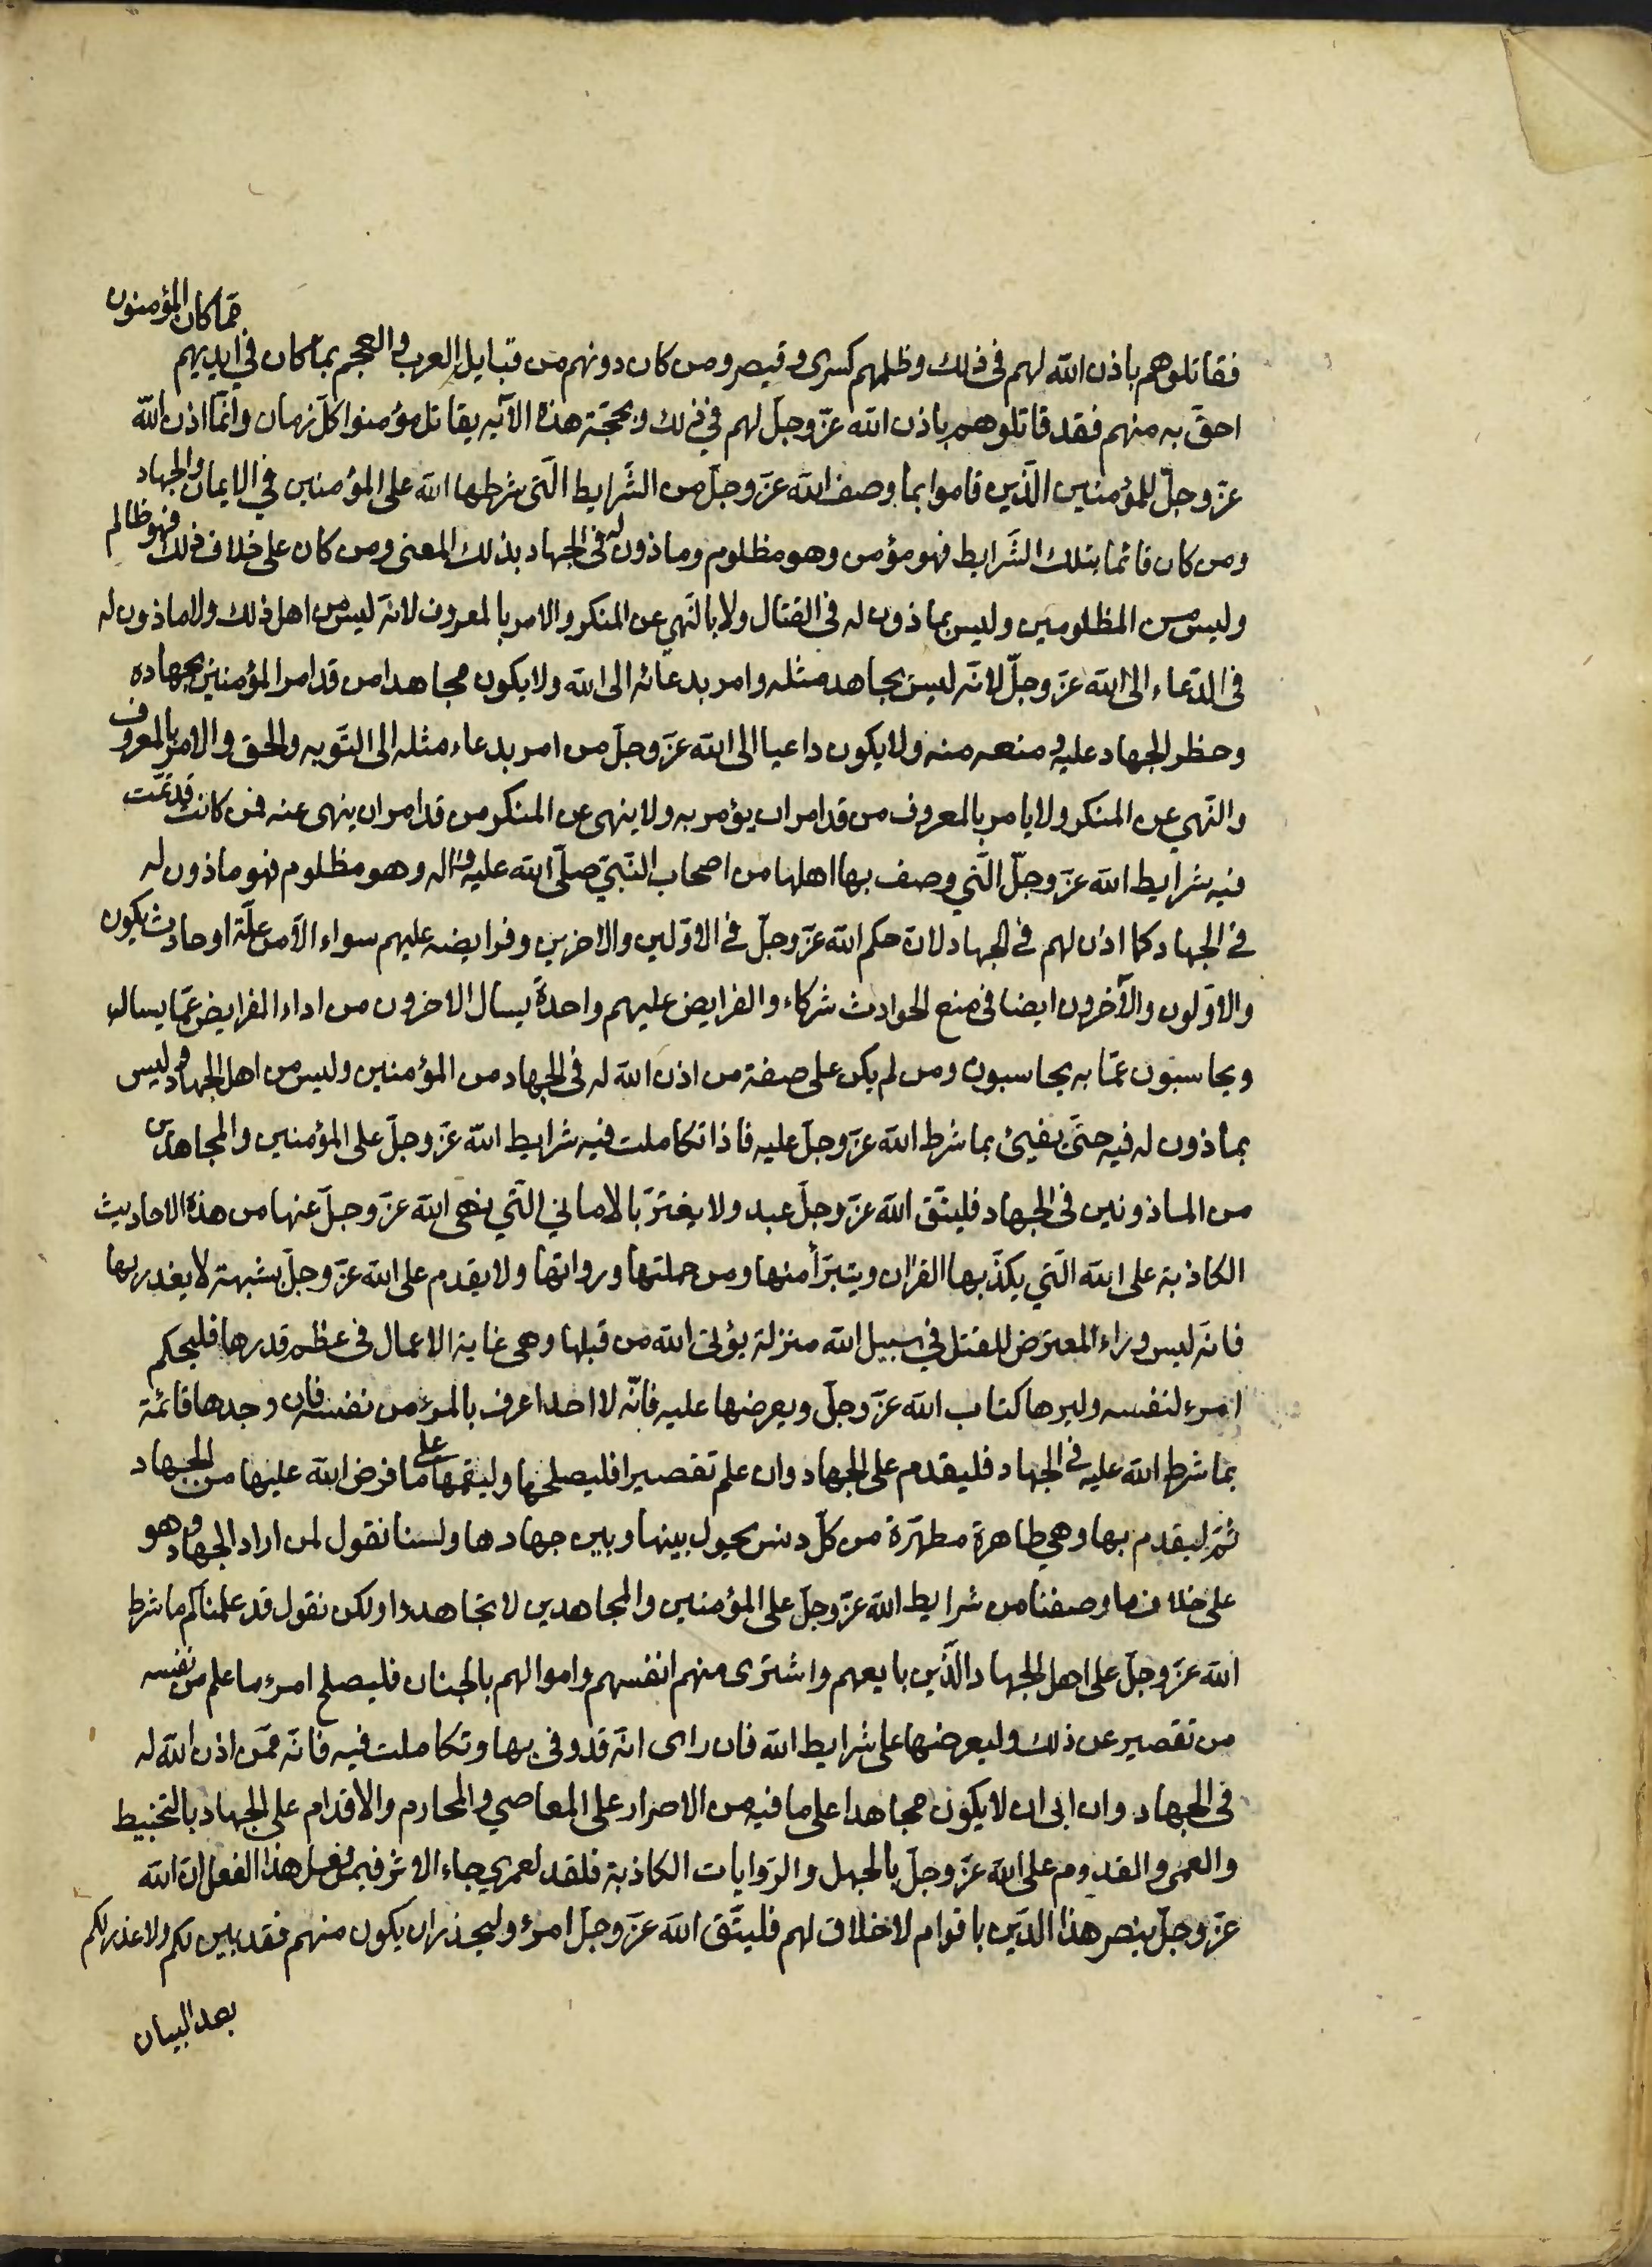 فقاتلوهم باذن الله لهم فى ذلك وظلمهم كسرى وقيصر ومن كان دونهم من قبايل العرب والعجم بما كان فى ايديهم مما كان المؤمنون
احقّ به منهم فقد قاتلوهم باذن الله عزّ وجلّ لهم في ذلك وبحجّة هذه الآيه يقاتل مؤمنوا كلّ زمان وانّما اذن الله
عزّ وجلّ للمؤمنين الّذين قاموا بما وصف الله عزّ وجلّ من الشّرايط الّتى شرطها الله على المؤمنين في الايمان والجهاد
ومن كان قائما بتلك الشّرايط فهو مؤمن وهو مظلوم وماذون له فى الجهاد بذلك المعنى ومن كان على خلاف ذلك فهو ظالم
وليس من المظلومين وليس بماذون له فى القتال ولا بالنّهي عن المنكر والامر بالمعروف لانّه ليس من اهل ذلك ولا ماذون له
فى الدّعاء الى الله عزّ وجلّ لانّه ليس يجاهد مثله وامر بدعائه الى الله ولا يكون مجاهدا من قد امر المؤمنين بجهاده
وحظر الجهاد عليه ومنعه منه ولا يكون داعيا الى الله عزّ وجلّ من امر بدعاء مثله الى التّوبه والحق والامر بالمعروف
والنّهي عن المنكر ولا يامر بالمعروف من قد امر ان يؤمر به ولا ينهى عن المنكر من قد امر ان ينهى عنه فمن كانت قد تمّت
فيه شرايط الله عزّ وجلّ الّتي وصف بها اهلها من اصحاب النّبيّ صلّى الله عليه واله وهو مظلوم فهو ماذون له
فى الجهاد كما اذن لهم فى الجهاد لانّ حكم الله عزّ وجلّ فى الاوّلين والاخرين وفرايضه عليهم سواء الّا من علّة او حادث يكون
والاوّلون والآخرون ايضا فى منع الحوادث شركاء والفرايض عليهم واحدةً يسال الاخرون من اداء الفرايض عمّا يسال
ويحاسبون عمّا به يحاسبون ومن لم يكن على صفة من اذن الله له فى الجهاد من المؤمنين وليس من اهل الجهاد وليس
بماذون له فيه حتّى يفيئ بما شرط الله عزّ وجلّ عليه فاذا تكاملت فيه شرايط الله عزّ وجلّ على المؤمنين والمجاهدين
من الماذونين فى الجهاد فليتّق الله عزّ وجلّ عبد ولا يغترّ بالاماني الّتي نهى الله عزّ وجلّ عنها من هذه الاحاديث
الكاذبة على الله الّتي يكذّبها القران ويتبرّأ منها ومن حملتها ورواتها ولا يقدم على الله عزّ وجلّ بشبهة لا يعذر بها
فانّه ليس وراء المعترض للقتل في سبيل الله منزلة يؤتى الله من قبلها وهى غاية الاعمال فى عظم قدرها فليحكم
امرء لنفسه وليرها كتاب الله عزّ وجلّ ويعرضها عليه فانّه لا احدا عرف بالمرء من نفسه فان وجدها قائمة
بما شرط الله عليه فى الجهاد فليقدم على الجهاد وان علم تقصيرا فليصلحها وليقمها على ما فرض الله عليها من الجهاد
ثمّ ليقدم بها وهي طاهرة مطهّرة من كلّ دنس يحول بينها وبين جهادها ولسنا نقول لمن اراد الجهاد وهو
على خلاف ما وصفنا من شرايط الله عزّ وجلّ على المؤمنين والمجاهدين لا تجاهدوا ولكن نقول قد علمناكم ما شرط
الله عزّ وجلّ على اهل الجهاد الّذين بايعهم واشترى منهم انفسهم واموالهم بالجنان فليصلح امرء ما علم من نفسه
من تقصير عن ذلك وليعرضها على شرايط الله فان راى انّه قد وفى بها وتكاملت فيه فانّه ممّن اذن الله له
فى الجهاد وان ابى ان لا يكون مجاهدا على ما فيه من الاصرار على المعاصي والمحارم والاقدام على الجهاد بالتخبيط
والعمى والقدوم على الله عزّ وجلّ بالجهل والرّوايات الكاذبة فلقد لعمري جاء الاثر فيمن فعل هذا الفعل انّ الله
عزّ وجلّ ينصر هذا الدّين باقوام لا خلاق لهم فليتّق الله عزّ وجلّ امرؤ وليحذر ان يكون منهم فقد بين لكم ولا عذر لكم
بعد البيان